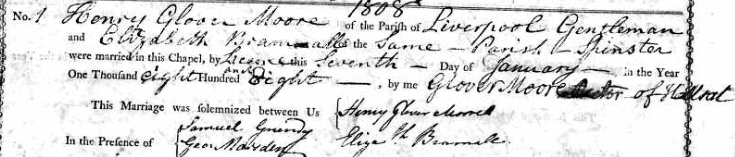 1808
No. 1 Henry Glover Moore of the Parish of Liverpool Gentleman
and Elizabeth Bramall of the Same – Parish – Spinster
were married in this Chapel, by License this Seventh – Day of January – in the Year
One Thousand eight Hundred and Eight – , by me Glover Moore Rector of Halsal
This Marriage was solemnized between Us { Henry Glover Moore
Eliza th Bramall
In the Presence of { Samuel Grundy
Geo: Marsden